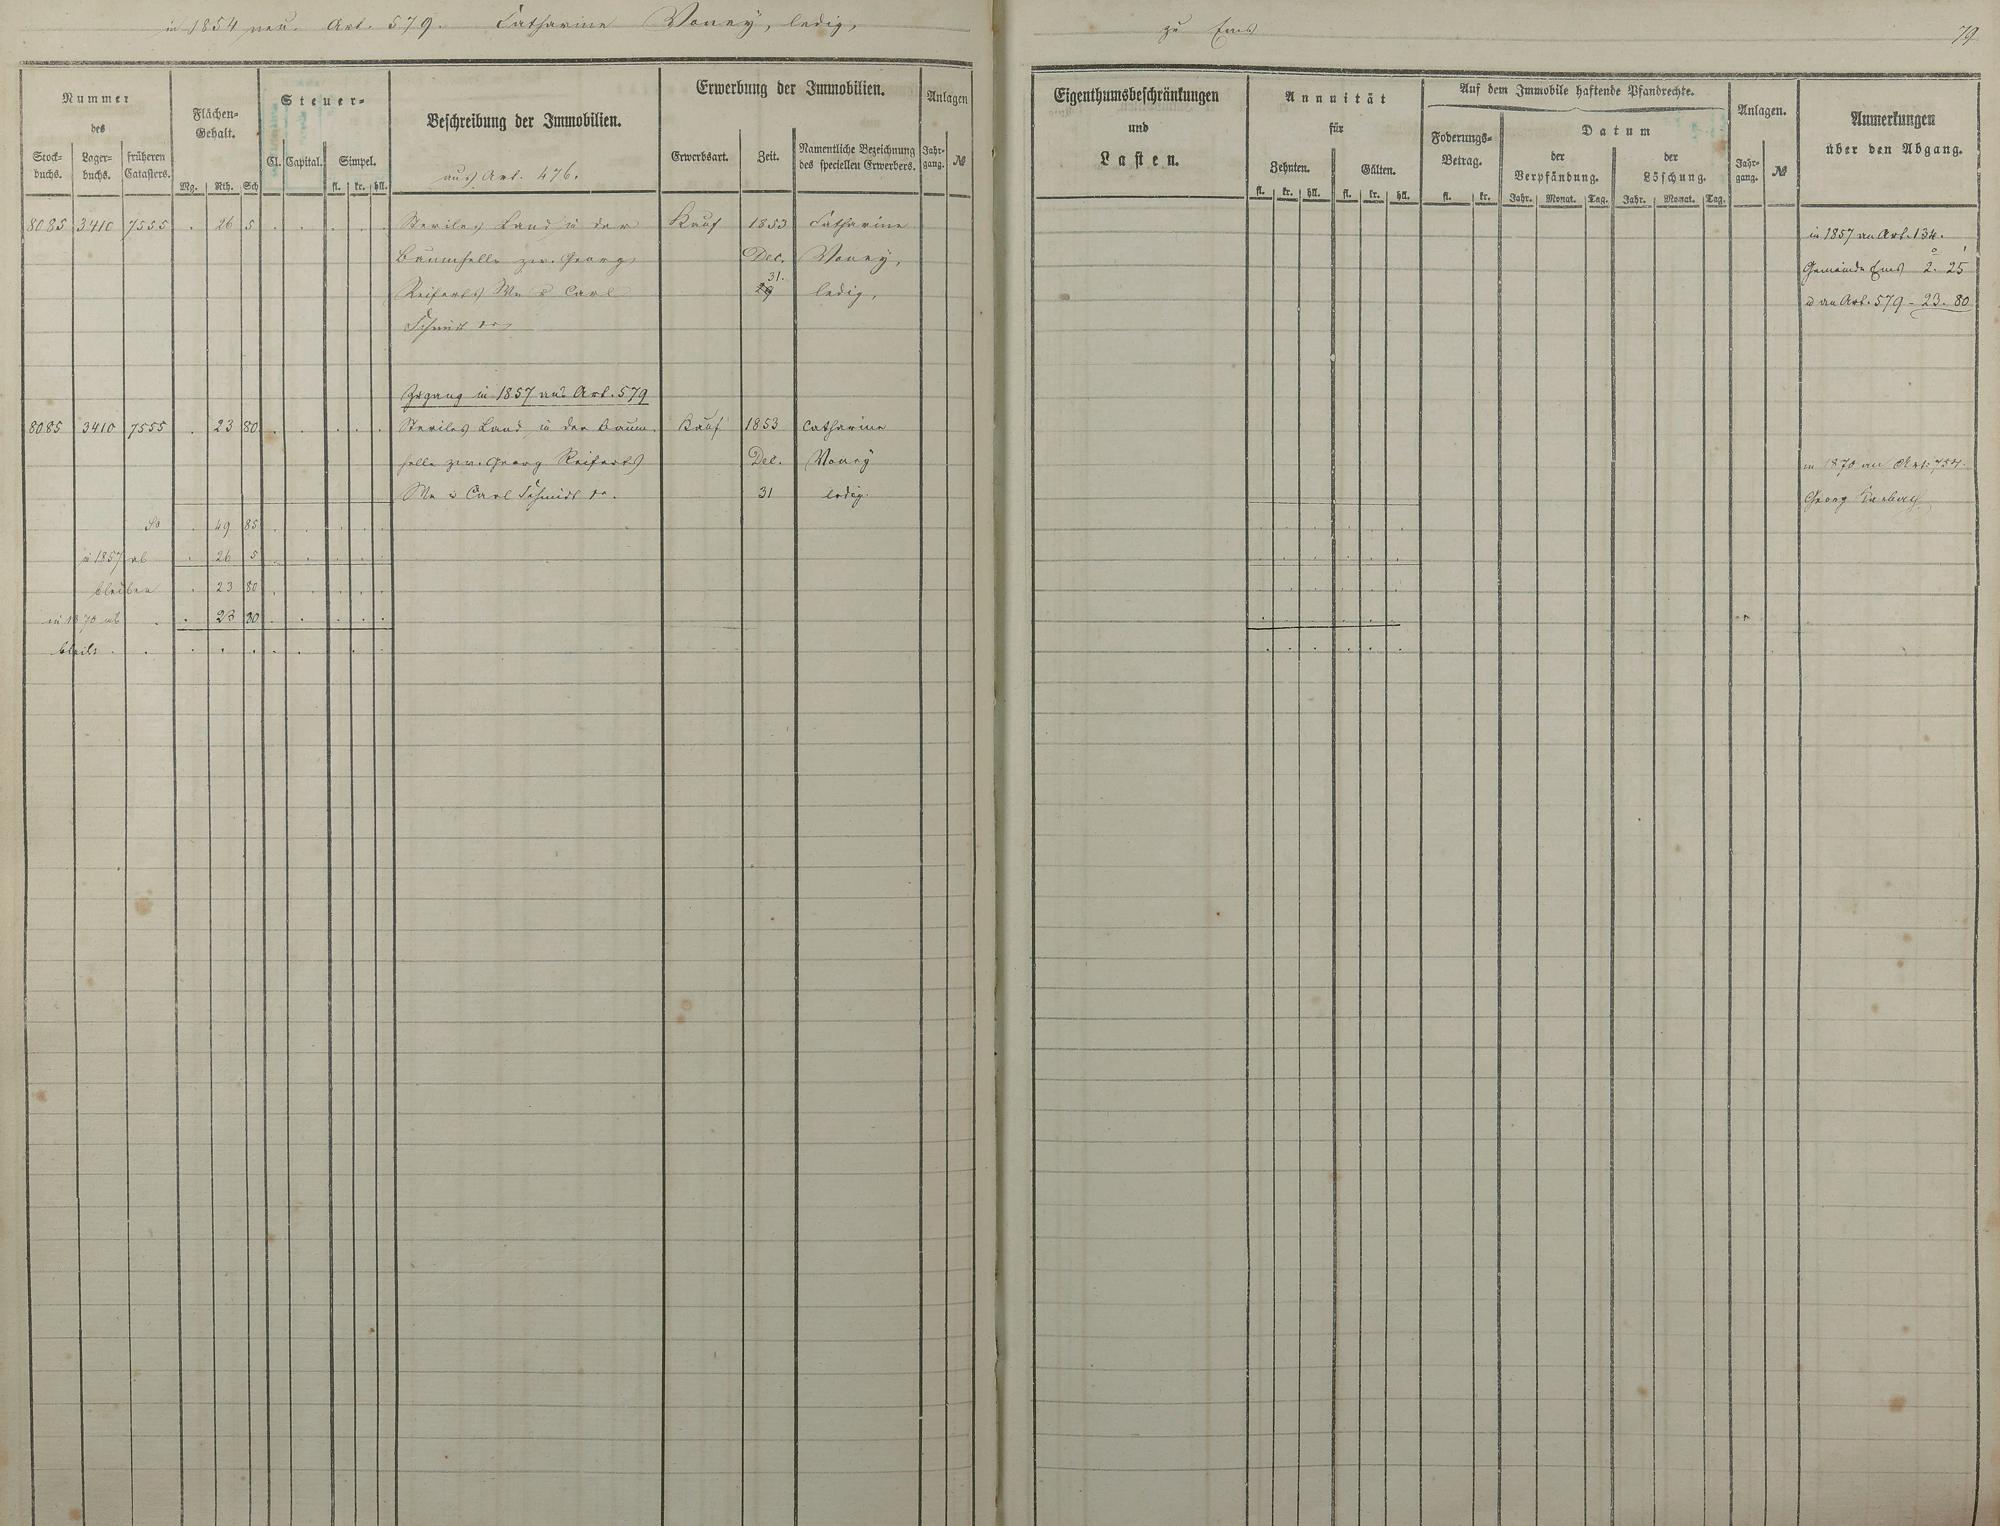 in 1854 neu. Art. 579. Catharine Vonny, ledig,
zu Ems
79
Nummer
des
Stock-
buchs.
Lager-
buchs.
früheren
Catasters.
Flächen-
Gehalt.
Mg. Rth. Sch
Steuer-
Cl. Capital. Simpel.
fl. kr. hll.
Beschreibung der Immobilien.
aus Art. 476.
Erwerbung der Immobilien.
Erwerbsart. Zeit.
Namentliche Bezeichnung
des speciellen Erwerbers.
Anlagen
Jahr-
gang.
№
Eigenthumsbeschränkungen
und
Lasten.
Annuität
für
Zehnten. Gülten.
fl. kr. hll. fl. kr. hll.
Auf dem Immobile haftende Pfandrechte.
Foderungs-
Betrag.
fl. kr.
Datum
der
Verpfändung.
der
Löschung.
Jahr. Monat. Tag. Jahr. Monat. Tag.
Anlagen.
Jahr-
gang.
№
Anmerkungen
über den Abgang.
8085 3410 7555 . 26 5 Steriles Land in der Kauf 1853 Catharine
Baumhelle zw. Georg Dec. Vonny,
31.
Reiferts We u Carl 29 ledig,
Schmidt
in 1857 an Art. 134.
Gemeinde Ems 2. 25
u an Art. 579 - 23. 80
Zugang in 1857 aus Art. 579
8085 3410 7555 . 23 80 Steriles Land in der Baum- Kauf 1853 Catharine
helle zw. Georg Reiferts Dec. Vonny
We u Carl Schmidt 31 ledig.
in 1870 an Art.
Georg
Sa . 49 85
in 1857 ab . 26 5
bleiben . 23 80
in 1870 ab . . 23 80
bleibt . . . . .